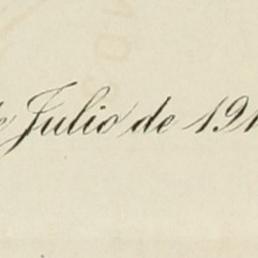 de Julio de 191